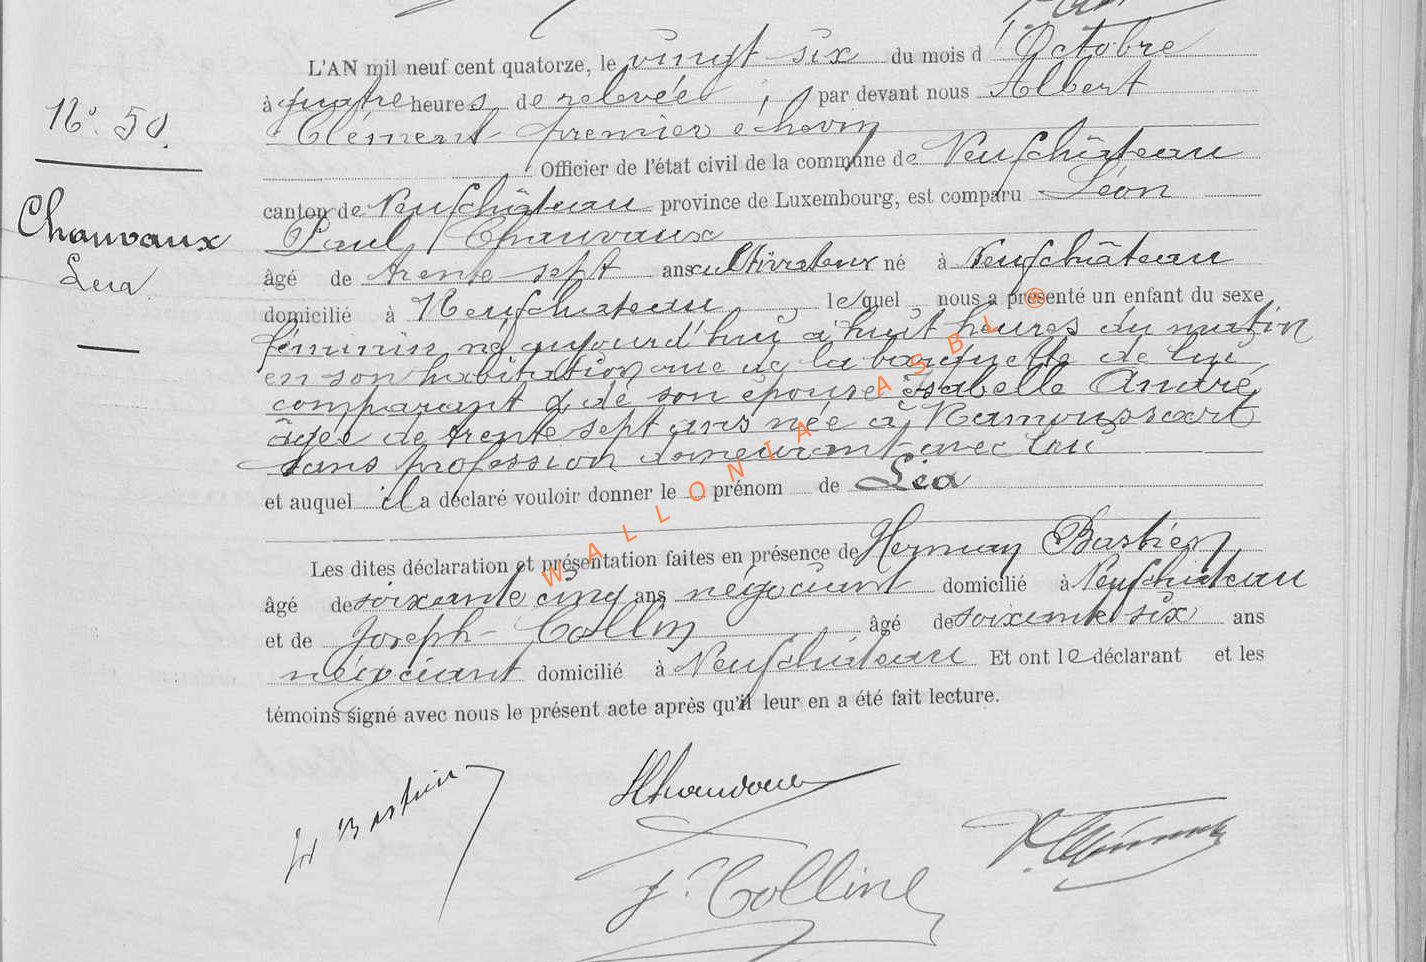 L'AN mil neuf cent quatorze, le vingt six du mois d'Octobre
à quatre heures de relevée, par devant nous Albert
Clément premier échevin
Officier de l'état civil de la commune de Neufchâteau
canton de Neufchâteau province de Luxembourg, est comparu Léon
Paul Chauvaux
âgé de trente sept ans cultivateur né à Neufchâteau
domicilié à Neufchateau, lequel nous a présenté un enfant du sexe
féminin né aujourd'hui à huit heures du matin
en son habitation rue de la de lui
comparant & de son épouse Isabelle André
âgée de trente sept ans née à Namoussart
sans profession demeurant avec lui
et auquel il a déclaré vouloir donner le prénom de Léa
Les dites déclaration et présentation faites en présence de Bastien
âgé de soixante cinq ans négociant domicilié à Neufchateau
et de Joseph Collin âgé de soixante six ans
négociant domicilié à Neufchateau Et ont le déclarant et les
témoins signé avec nous le présent acte après qu'il leur en a été fait lecture.
No. 50.
Chauvaux
Léa.
WALLONIA ASBL ®
Bastien
Chauvaux
J. Colline